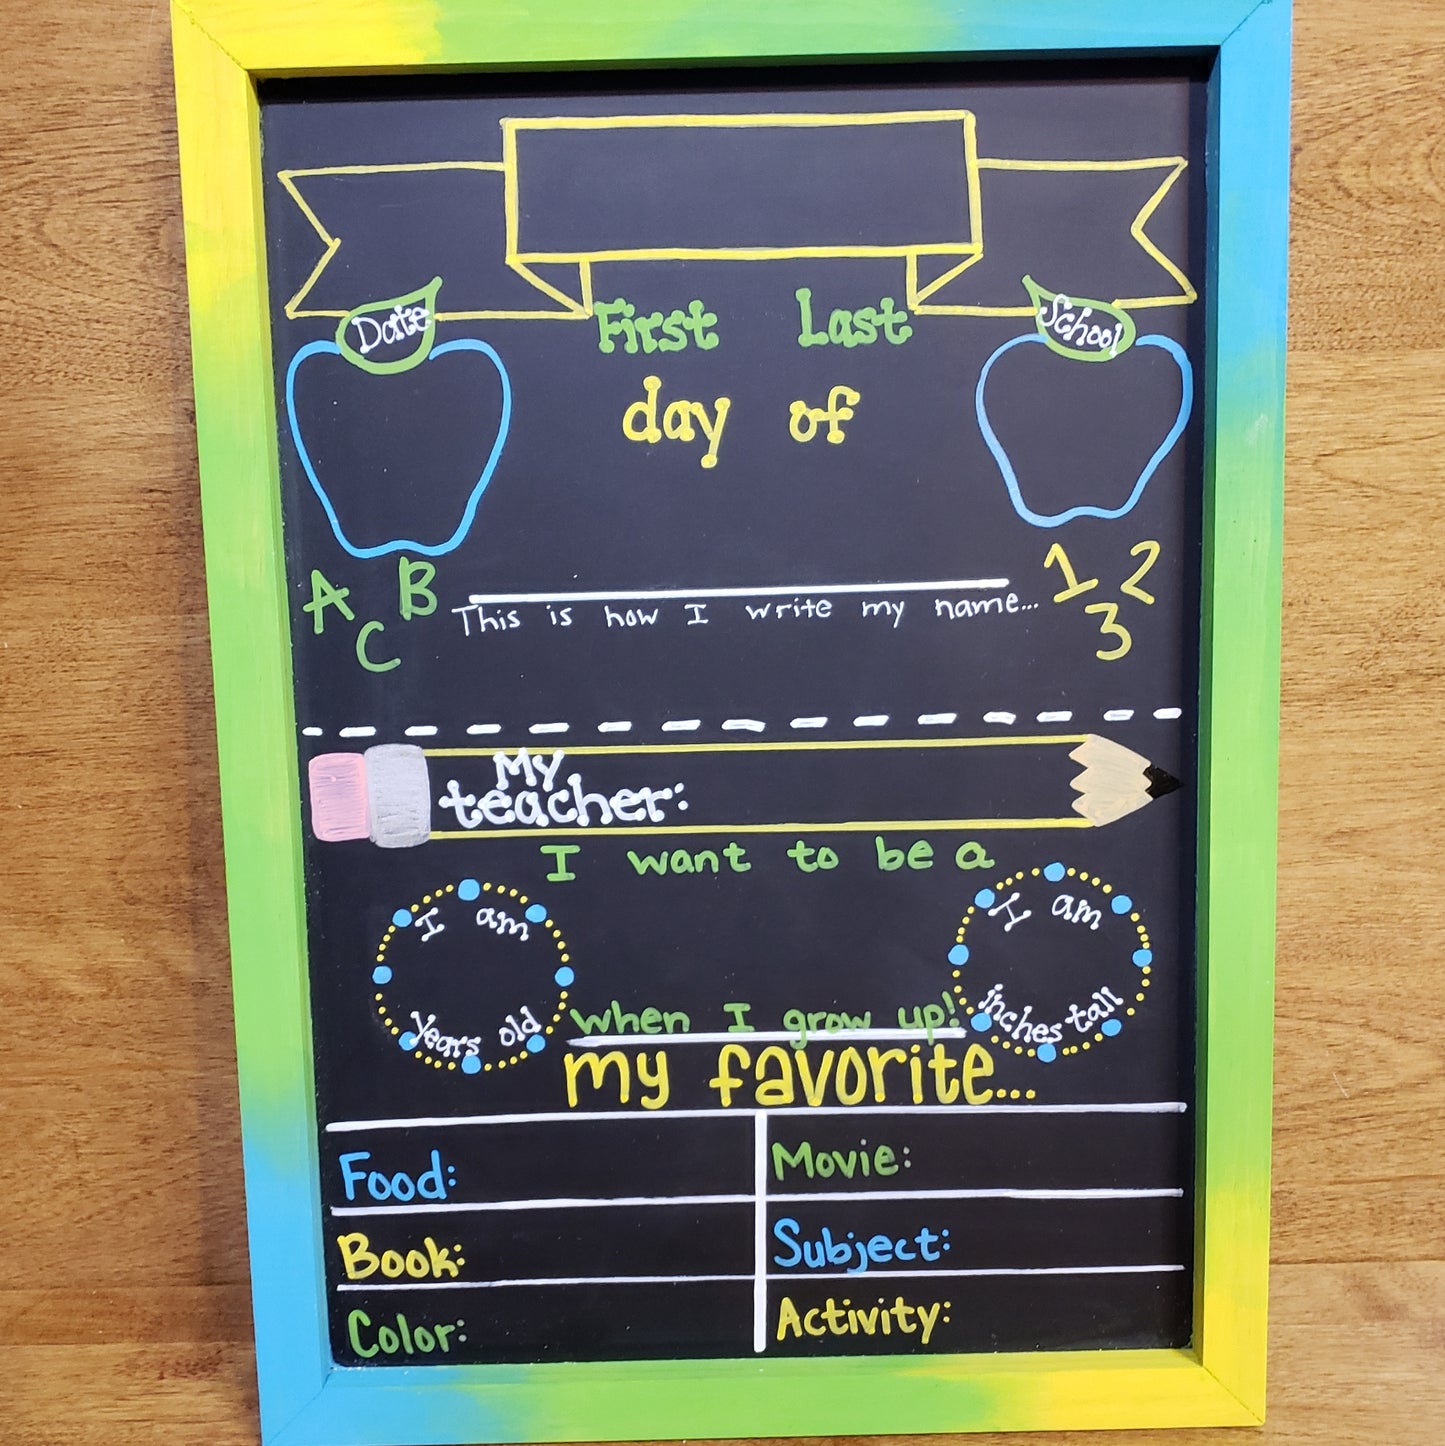 Date
School
First Last
day of
A B
C
1 2
3
This is how I write my name...
My
teacher:
I want to be a
I am
years old
I am
inches tall
when I grow up!
my favorite...
Food:
Movie:
Book:
Subject:
Color:
Activity: